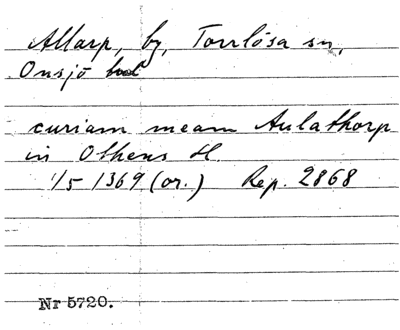 Allarp, by, Torrlösa sn,
Onsjö hd
curiam meam Aulathorp
in Othens H.
1/5 1369 (or.) Rep. 2868
Nr 5720.